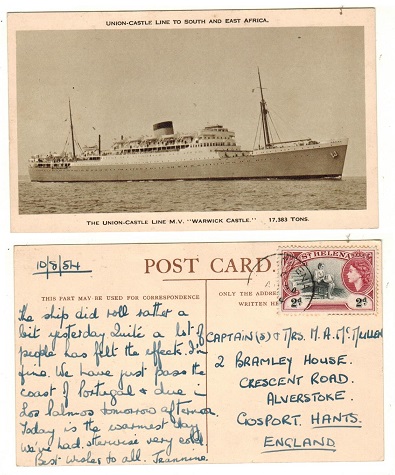 UNION-CASTLE LINE TO SOUTH AND EAST AFRICA.
THE UNION-CASTLE LINE M.V. "WARWICK CASTLE." 17,383 TONS.
10/8/54
POST CARD.
THIS PART MAY BE USED FOR CORRESPONDENCE
ONLY THE ADDRE
WRITTEN HE
ST HELENA
2d 2d
The ship did roll rather a
bit yesterday. Quite a lot of
people has felt the effects. I'm
fine. We have just pass the
coast of Portugal & due in
Los Palmos tomorrow afternoon.
Today is the warmest day
we've had. otherwise very cold.
Best wishes to all. Jeannine.
CAPTAIN(S) & MRS. M. A. McMULLAN
2 BRAMLEY HOUSE.
CRESCENT ROAD.
ALVERSTOKE.
GOSPORT. HANTS.
ENGLAND